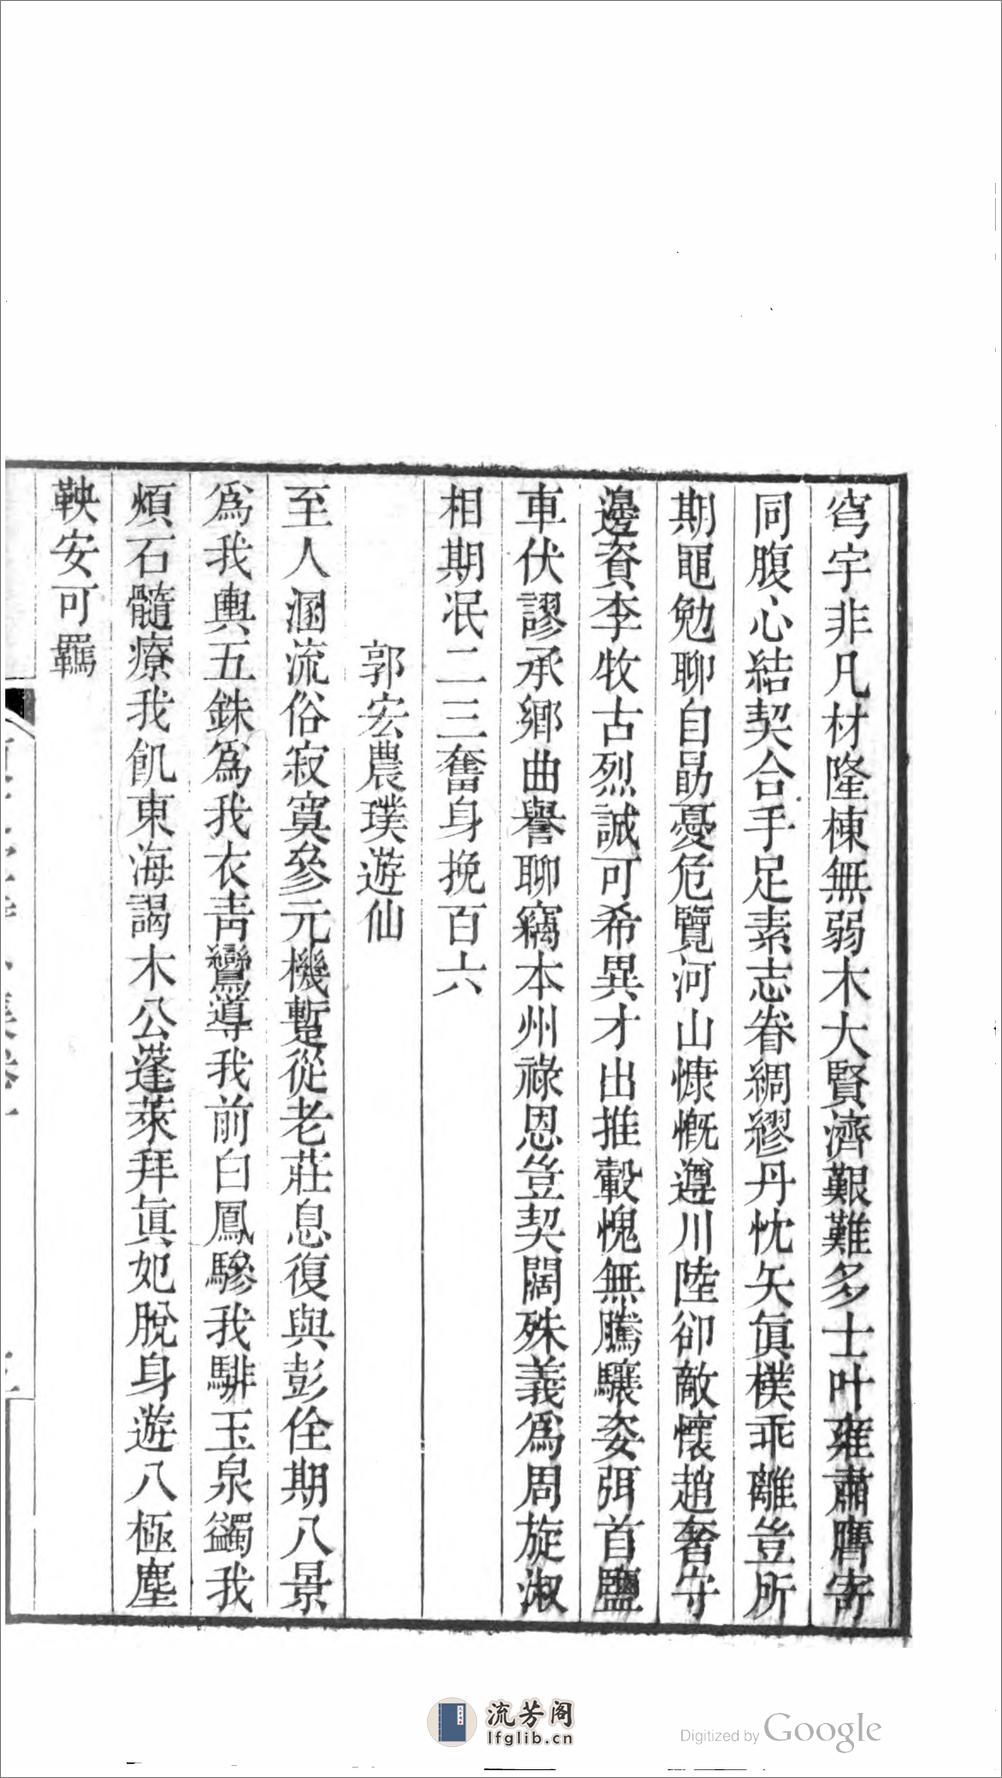 穹宇非凡材隆棟無弱木大賢濟艱難多士叶雍肅膺寄
同腹心結契合手足素志眷綢繆丹忱矢眞樸乖離豈所
期黽勉聊自勗憂危覽河山慷慨遵川陸卻敵懷趙奢守
邊賚李牧古烈誠可希異才出推轂愧無騰驤姿弭首鹽
車伏謬承鄉曲譽聊竊本州祿恩豈契闊殊義爲周旋淑
相期泯二三奮身挽百六
郭宏農璞遊仙
至人溷流俗寂寞參元機蹔從老莊息復與彭佺期八景
爲我輿五銖爲我衣靑鸞導我前白鳳驂我騑玉泉蠲我
煩石髓療我飢東海謁木公蓬萊拜眞妃脫身遊八極塵
鞅安可羈
流芳阁
lfglib.cn
Digitized by Google